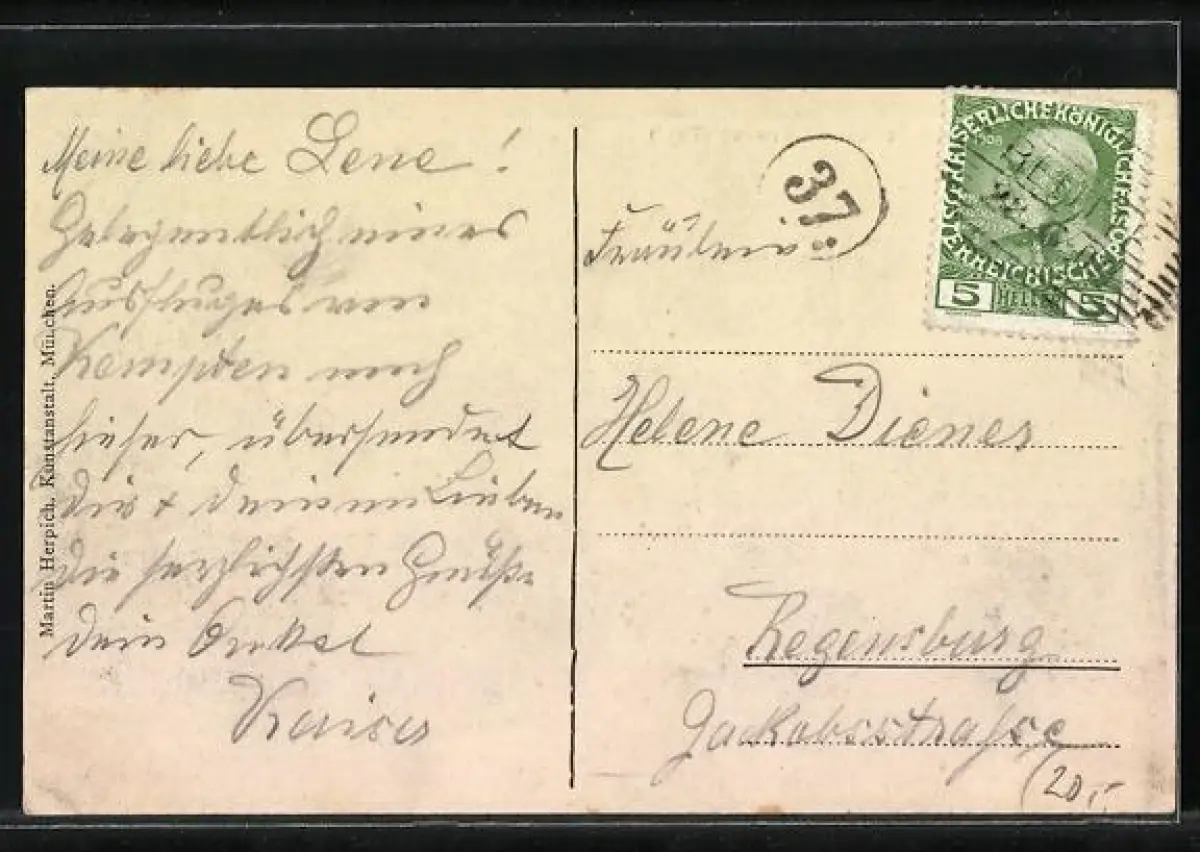 Meine liebe Lene!
Gelegentlich eines
Ausfluges von
Kempten nach
hieher, übersendet
Dir + Deinen Lieben
die herzlichsten Grüße
Dein Onkel
Kaiser
Martin Herpich, Kunstanstalt, München.
37.
KAISERLICHE KÖNIGLICHE ÖSTERREICHISCHE POST
1908
5 HELLER 5
Fräulein
Helene Dienes
Regensburg
Jackobsstrasse
20,-